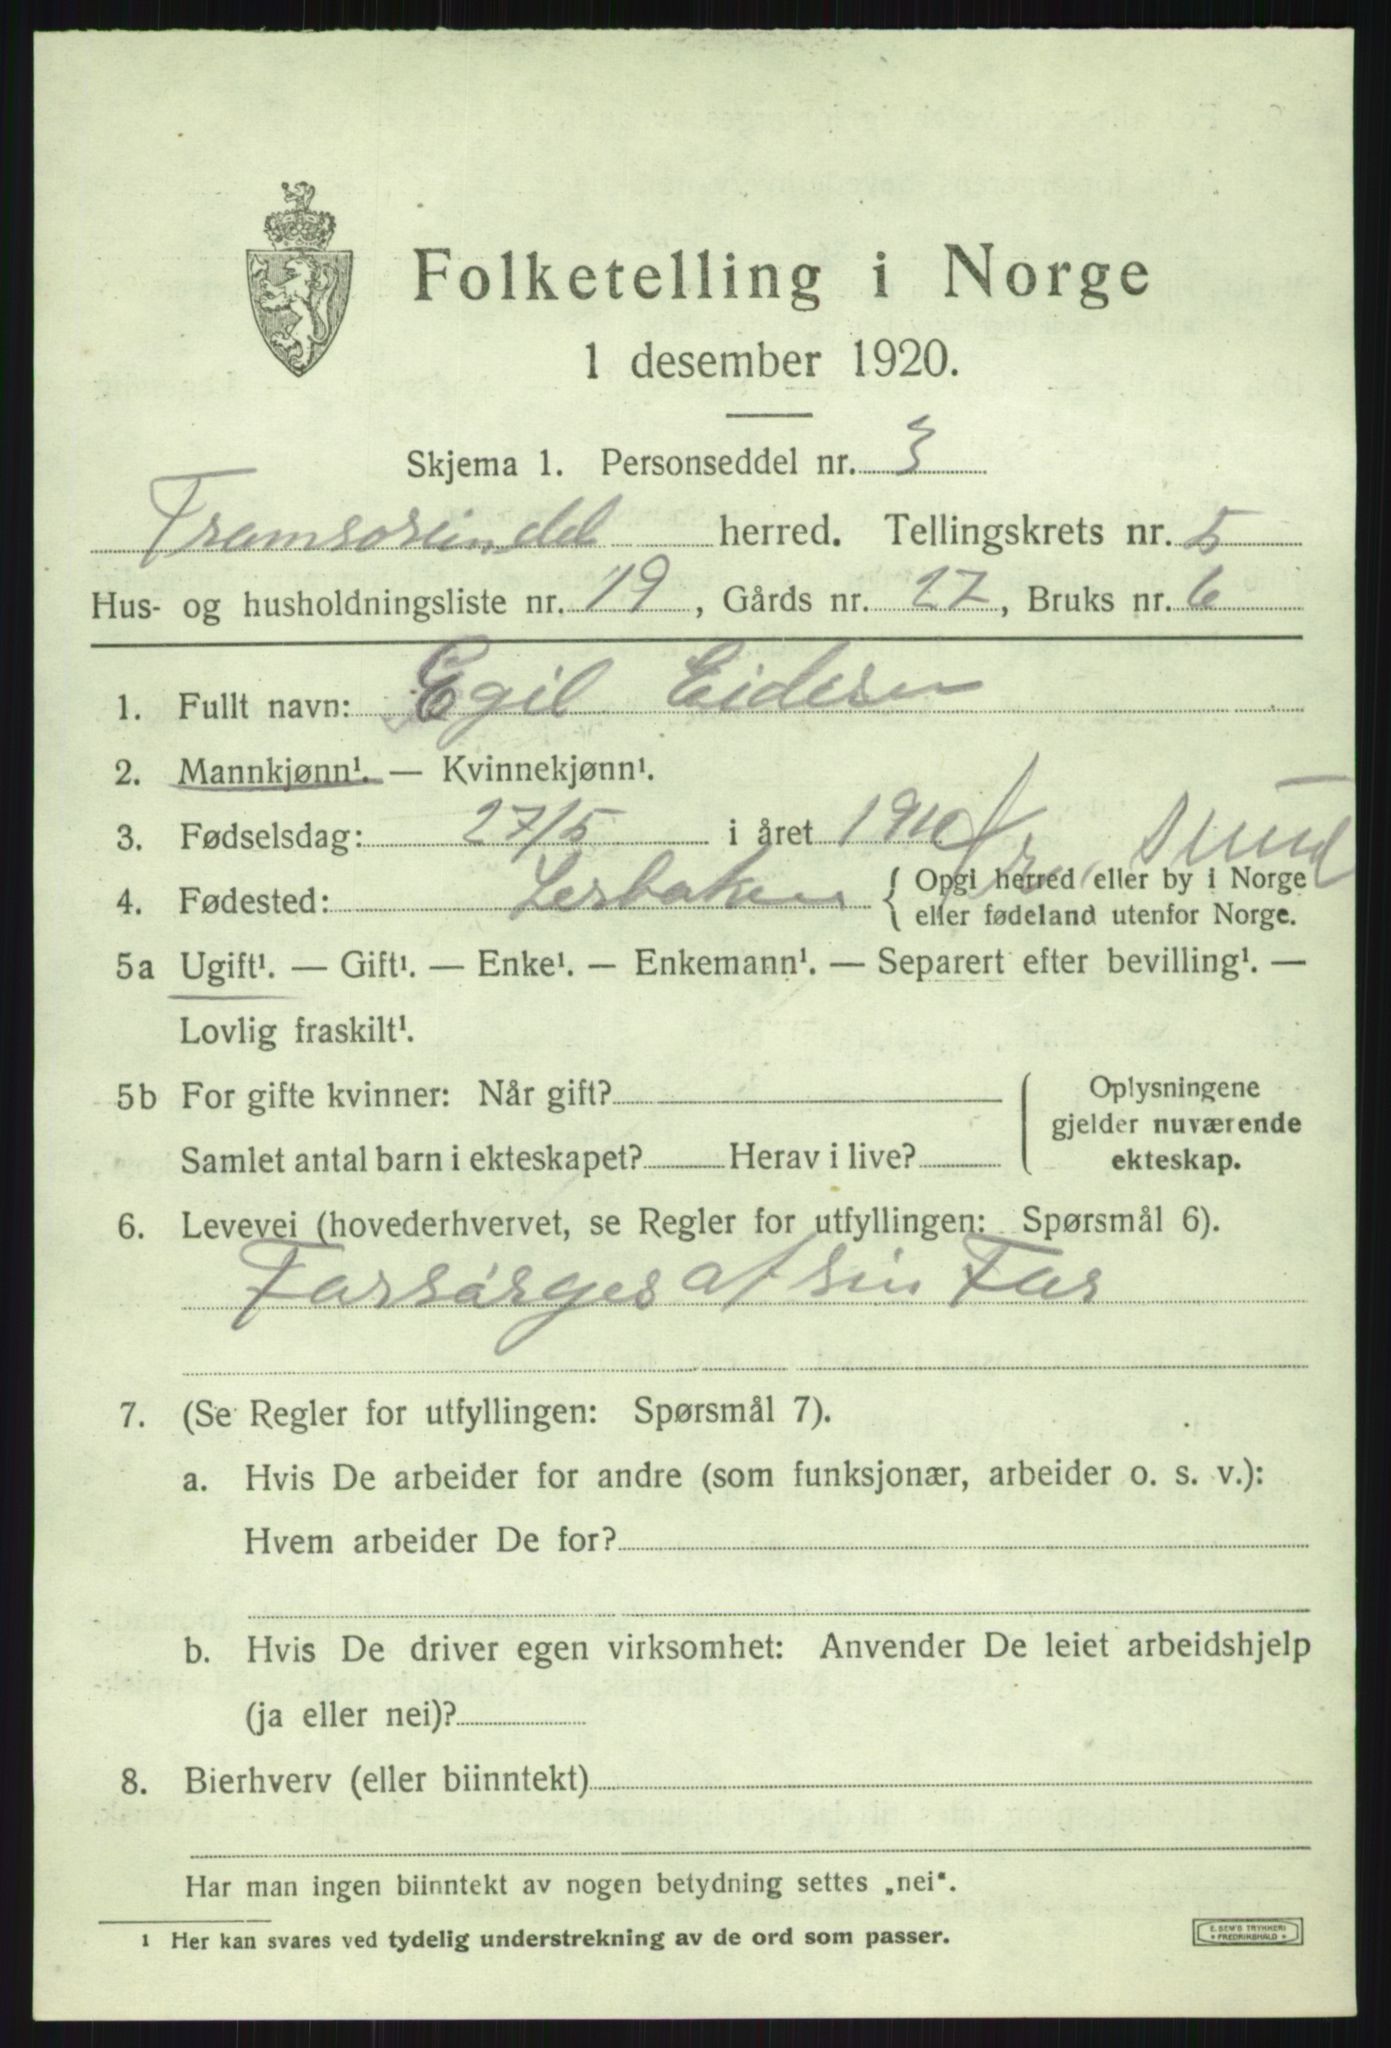 Folketelling i Norge
1 desember 1920.
Skjema 1. Personseddel nr. 3
Tromsøsundet herred. Tellingskrets nr. 5
Hus- og husholdningsliste nr. 19, Gårds nr. 27, Bruks nr. 6
1. Fullt navn: Egil Eidesen
2. Mannkjønn¹. — Kvinnekjønn¹.
3. Fødselsdag: 27/5 i året 1910
4. Fødested: { Opgi herred eller by i Norge
eller fødeland utenfor Norge.
5a Ugift¹. — Gift¹. — Enke¹. — Enkemann¹. — Separert efter bevilling¹. —
Lovlig fraskilt¹.
5b For gifte kvinner: Når gift?
Samlet antal barn i ekteskapet? Herav i live?
Oplysningene
gjelder nuværende
ekteskap.
6. Levevei (hovederhvervet, se Regler for utfyllingen: Spørsmål 6).
Forsørges af sin Far
7. (Se Regler for utfyllingen: Spørsmål 7).
a. Hvis De arbeider for andre (som funksjonær, arbeider o. s. v.):
Hvem arbeider De for?
b. Hvis De driver egen virksomhet: Anvender De leiet arbeidshjelp
(ja eller nei)?
8. Bierhverv (eller biinntekt)
Har man ingen biinntekt av nogen betydning settes „nei".
¹ Her kan svares ved tydelig understrekning av de ord som passer.
E. SEM'S TRYKKERI
* FREDRIKSHALD *